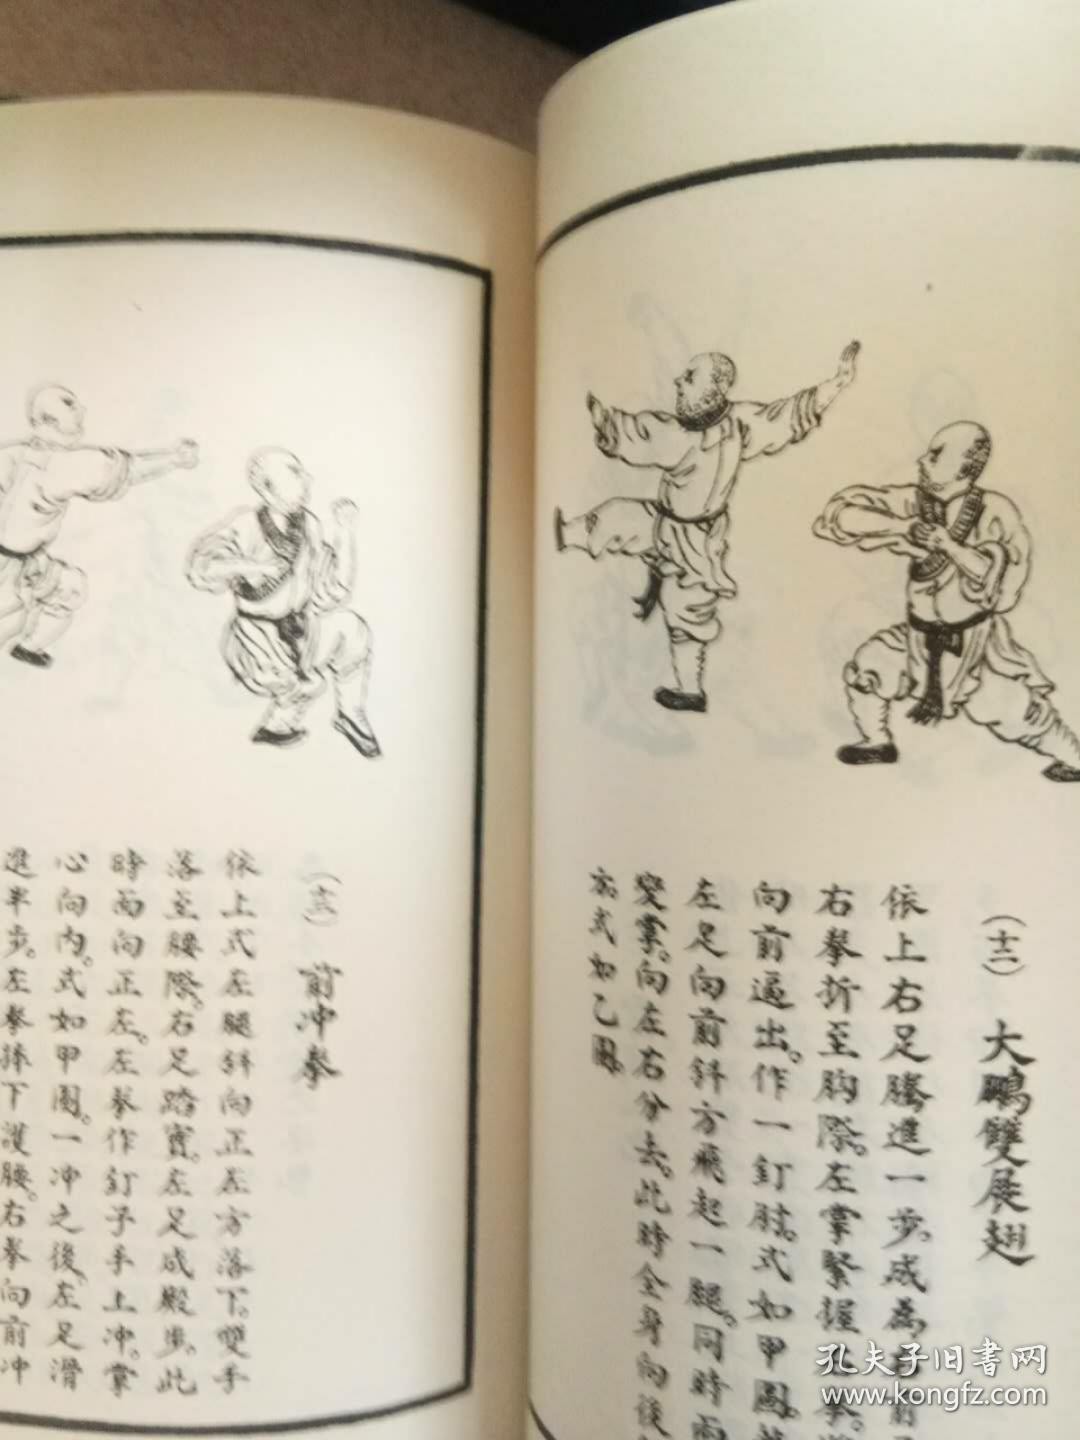 (十二) 大鵬雙展翅
依上右足騰進一步。成為
右拳折至胸際。左掌緊握
向前逼出。作一釘肘。式如甲圖。
左足向前斜方飛起一腿。同時兩
變掌。向左右分去。此時全身向後
式如乙圖。
前冲拳
依上式左腿斜向正左方落下。雙手
落至腰際。右足踏實。左足成殿步。此
時面向正左。左拳作釘子手上冲。掌
心向內。式如甲圖。一冲之後。左足滑
進半步。左拳捧下護腰。右拳向前冲
孔夫子旧書网
www.kongfz.com